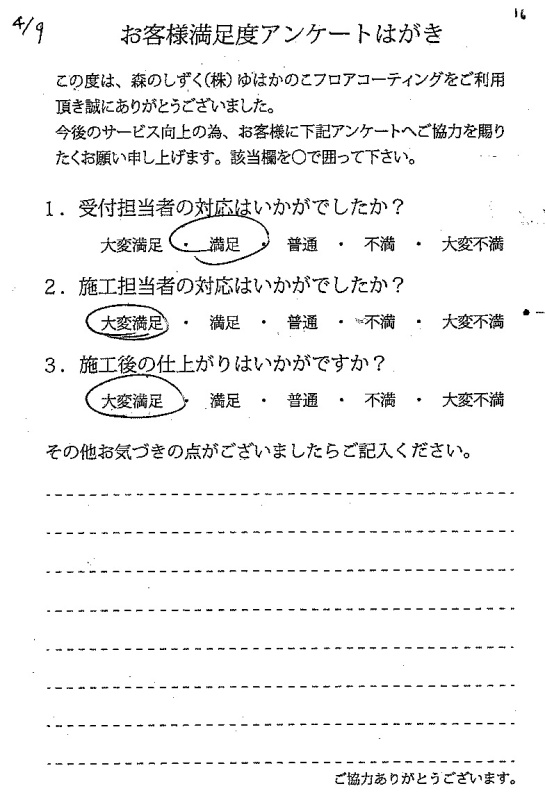 4/9
16
お客様満足度アンケートはがき
この度は、森のしずく(株)ゆはかのこフロアコーティングをご利用
頂き誠にありがとうございました。
今後のサービス向上の為、お客様に下記アンケートへご協力を賜り
たくお願い申し上げます。該当欄を○で囲って下さい。
1．受付担当者の対応はいかがでしたか？
大変満足 ・ 満足 ・ 普通 ・ 不満 ・ 大変不満
2．施工担当者の対応はいかがでしたか？
大変満足 ・ 満足 ・ 普通 ・ 不満 ・ 大変不満
3．施工後の仕上がりはいかがですか？
大変満足 ・ 満足 ・ 普通 ・ 不満 ・ 大変不満
その他お気づきの点がございましたらご記入ください。
ご協力ありがとうございます。